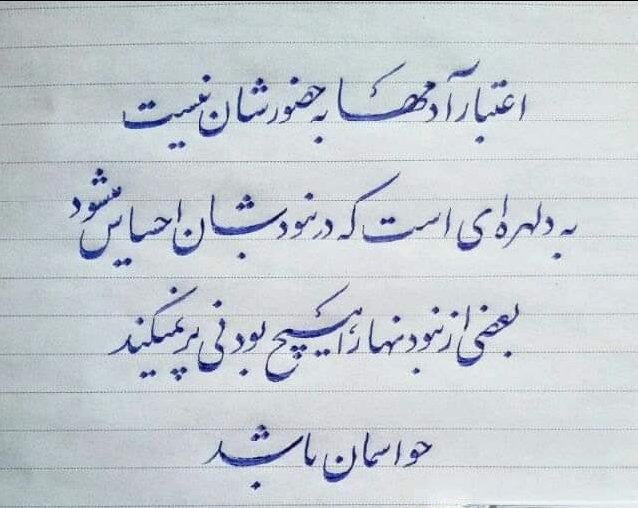 اعتبار آدمها به حضورشان نیست
به دلهره ای است که در نبودشان احساس میشود
بعضی از نبودنها را هیچ بودنی پر نمیکند
حواسمان باشد